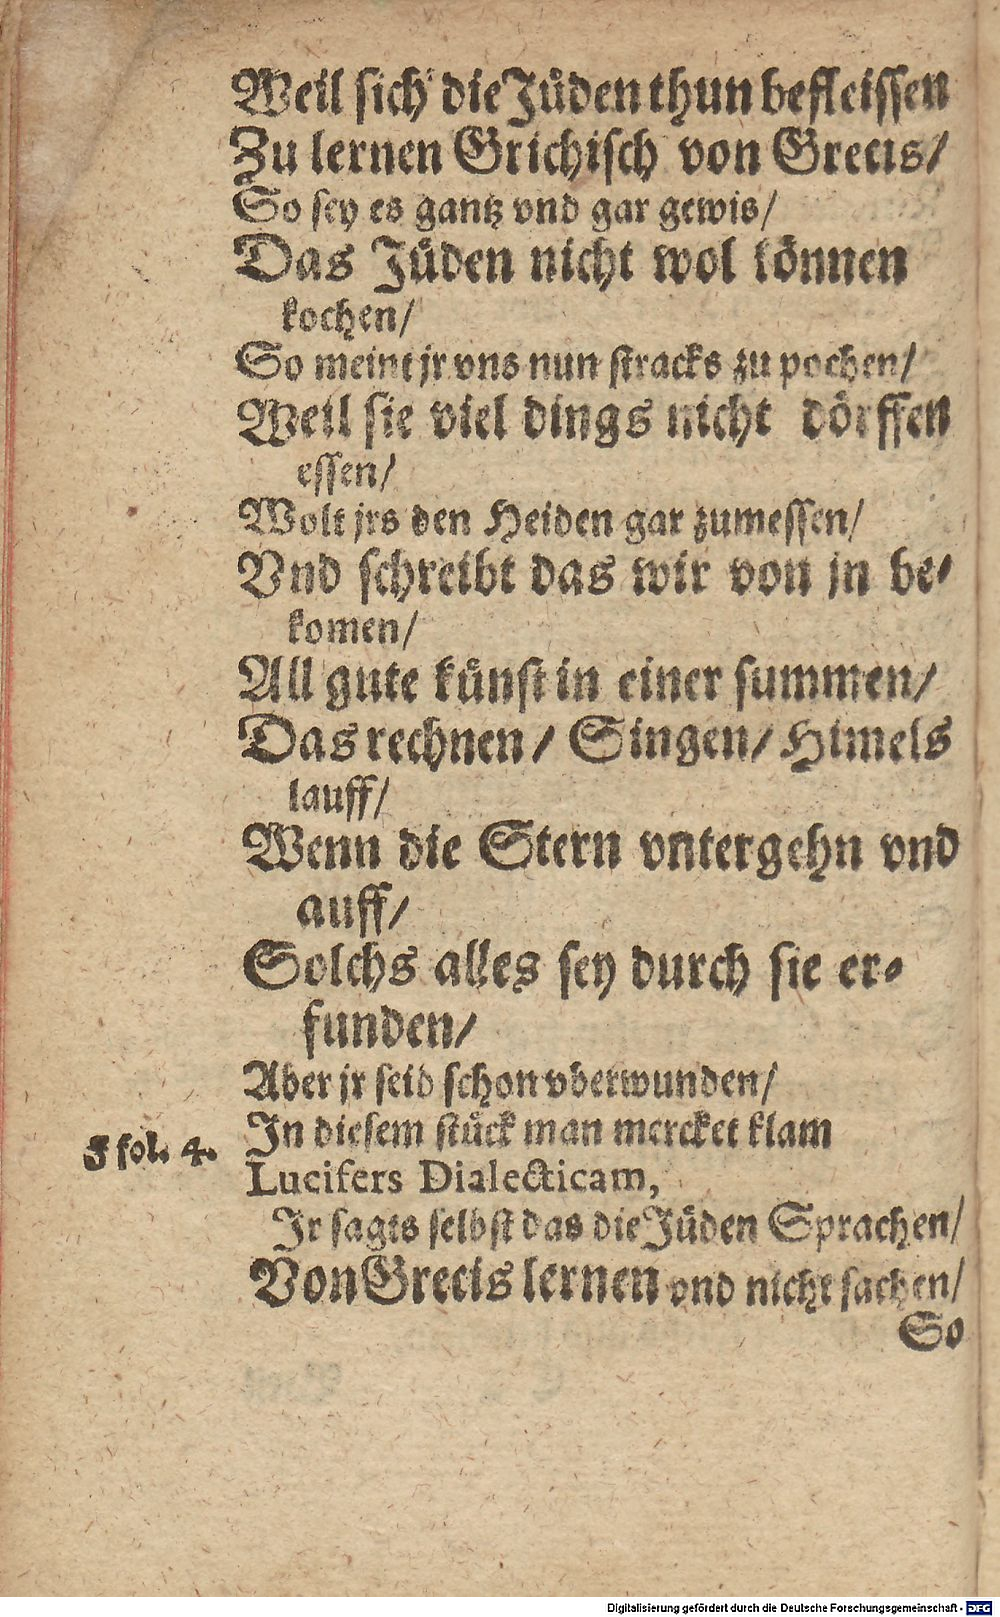 Weil sich die Jůden thun befleissen
Zu lernen Grichisch von Grecis/
So sey es gantz vnd gar gewis/
Das Jůden nicht wol können
kochen/
So meint jr vns nun stracks zu pochen/
Weil sie viel dings nicht dörffen
essen/
Wolt jrs den Heiden gar zumessen/
Vnd schreibt das wir von jn be-
komen/
All gute kůnst in einer summen/
Das rechnen/ Singen/ Himels
lauff/
Wenn die Stern vntergehn vnd
auff/
Solchs alles sey durch sie er-
funden/
Aber jr seid schon vberwunden/
In diesem stůck man mercket klam
J fol. 4.
Lucifers Dialecticam,
Jr sagts selbst das die Jůden Sprachen/
Von Grecis lernen vnd nicht sachen/
So
Digitalisierung gefördert durch die Deutsche Forschungsgemeinschaft - DFG